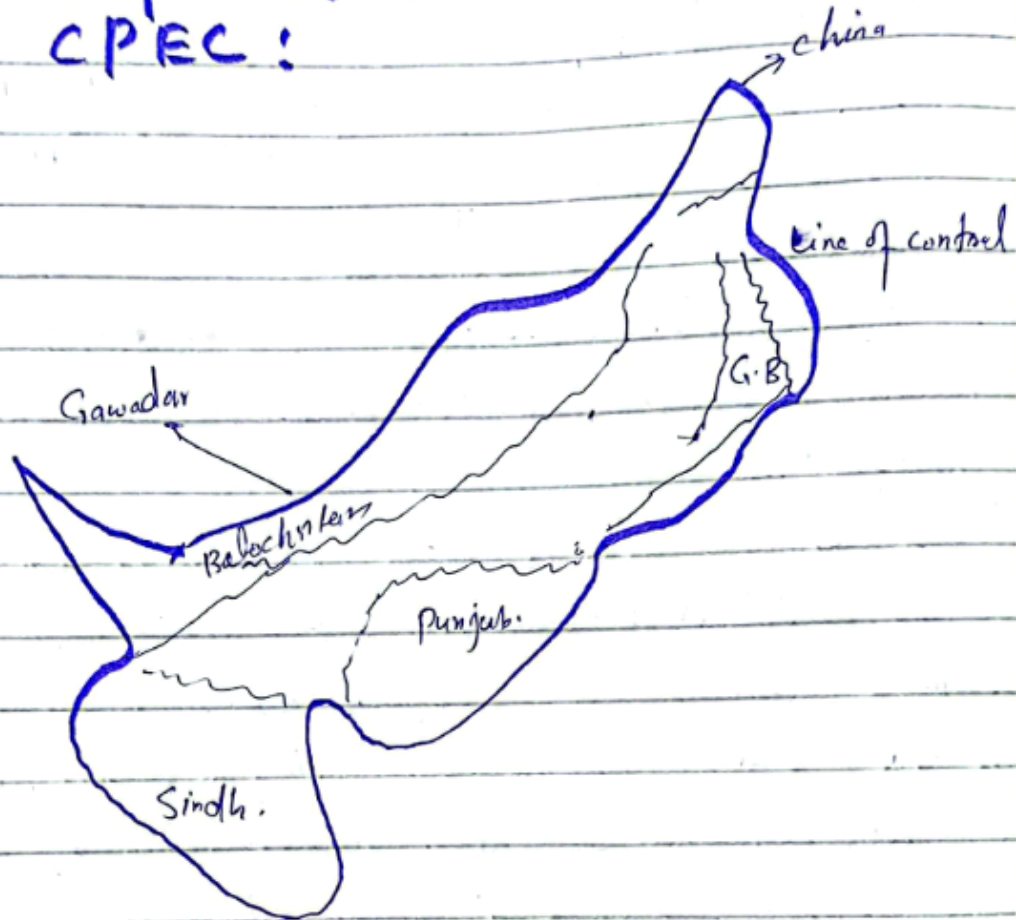 CPEC :
china
Line of control
G.B
Gawadar
Balochistan
Punjab.
Sindh.